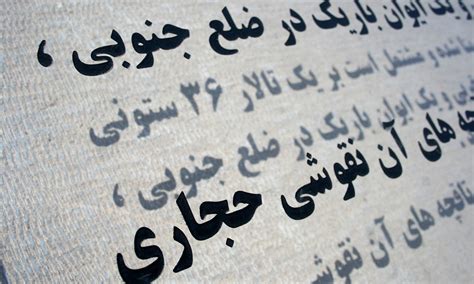 و یک ایوان باریک در ضلع جنوبی ،
شده و مشتمل است بر یک تالار ۳۶ ستونی
و یک ایوان باریک در ضلع جنوبی ،
های آن نقوشی حجاری
های آن نقوشی